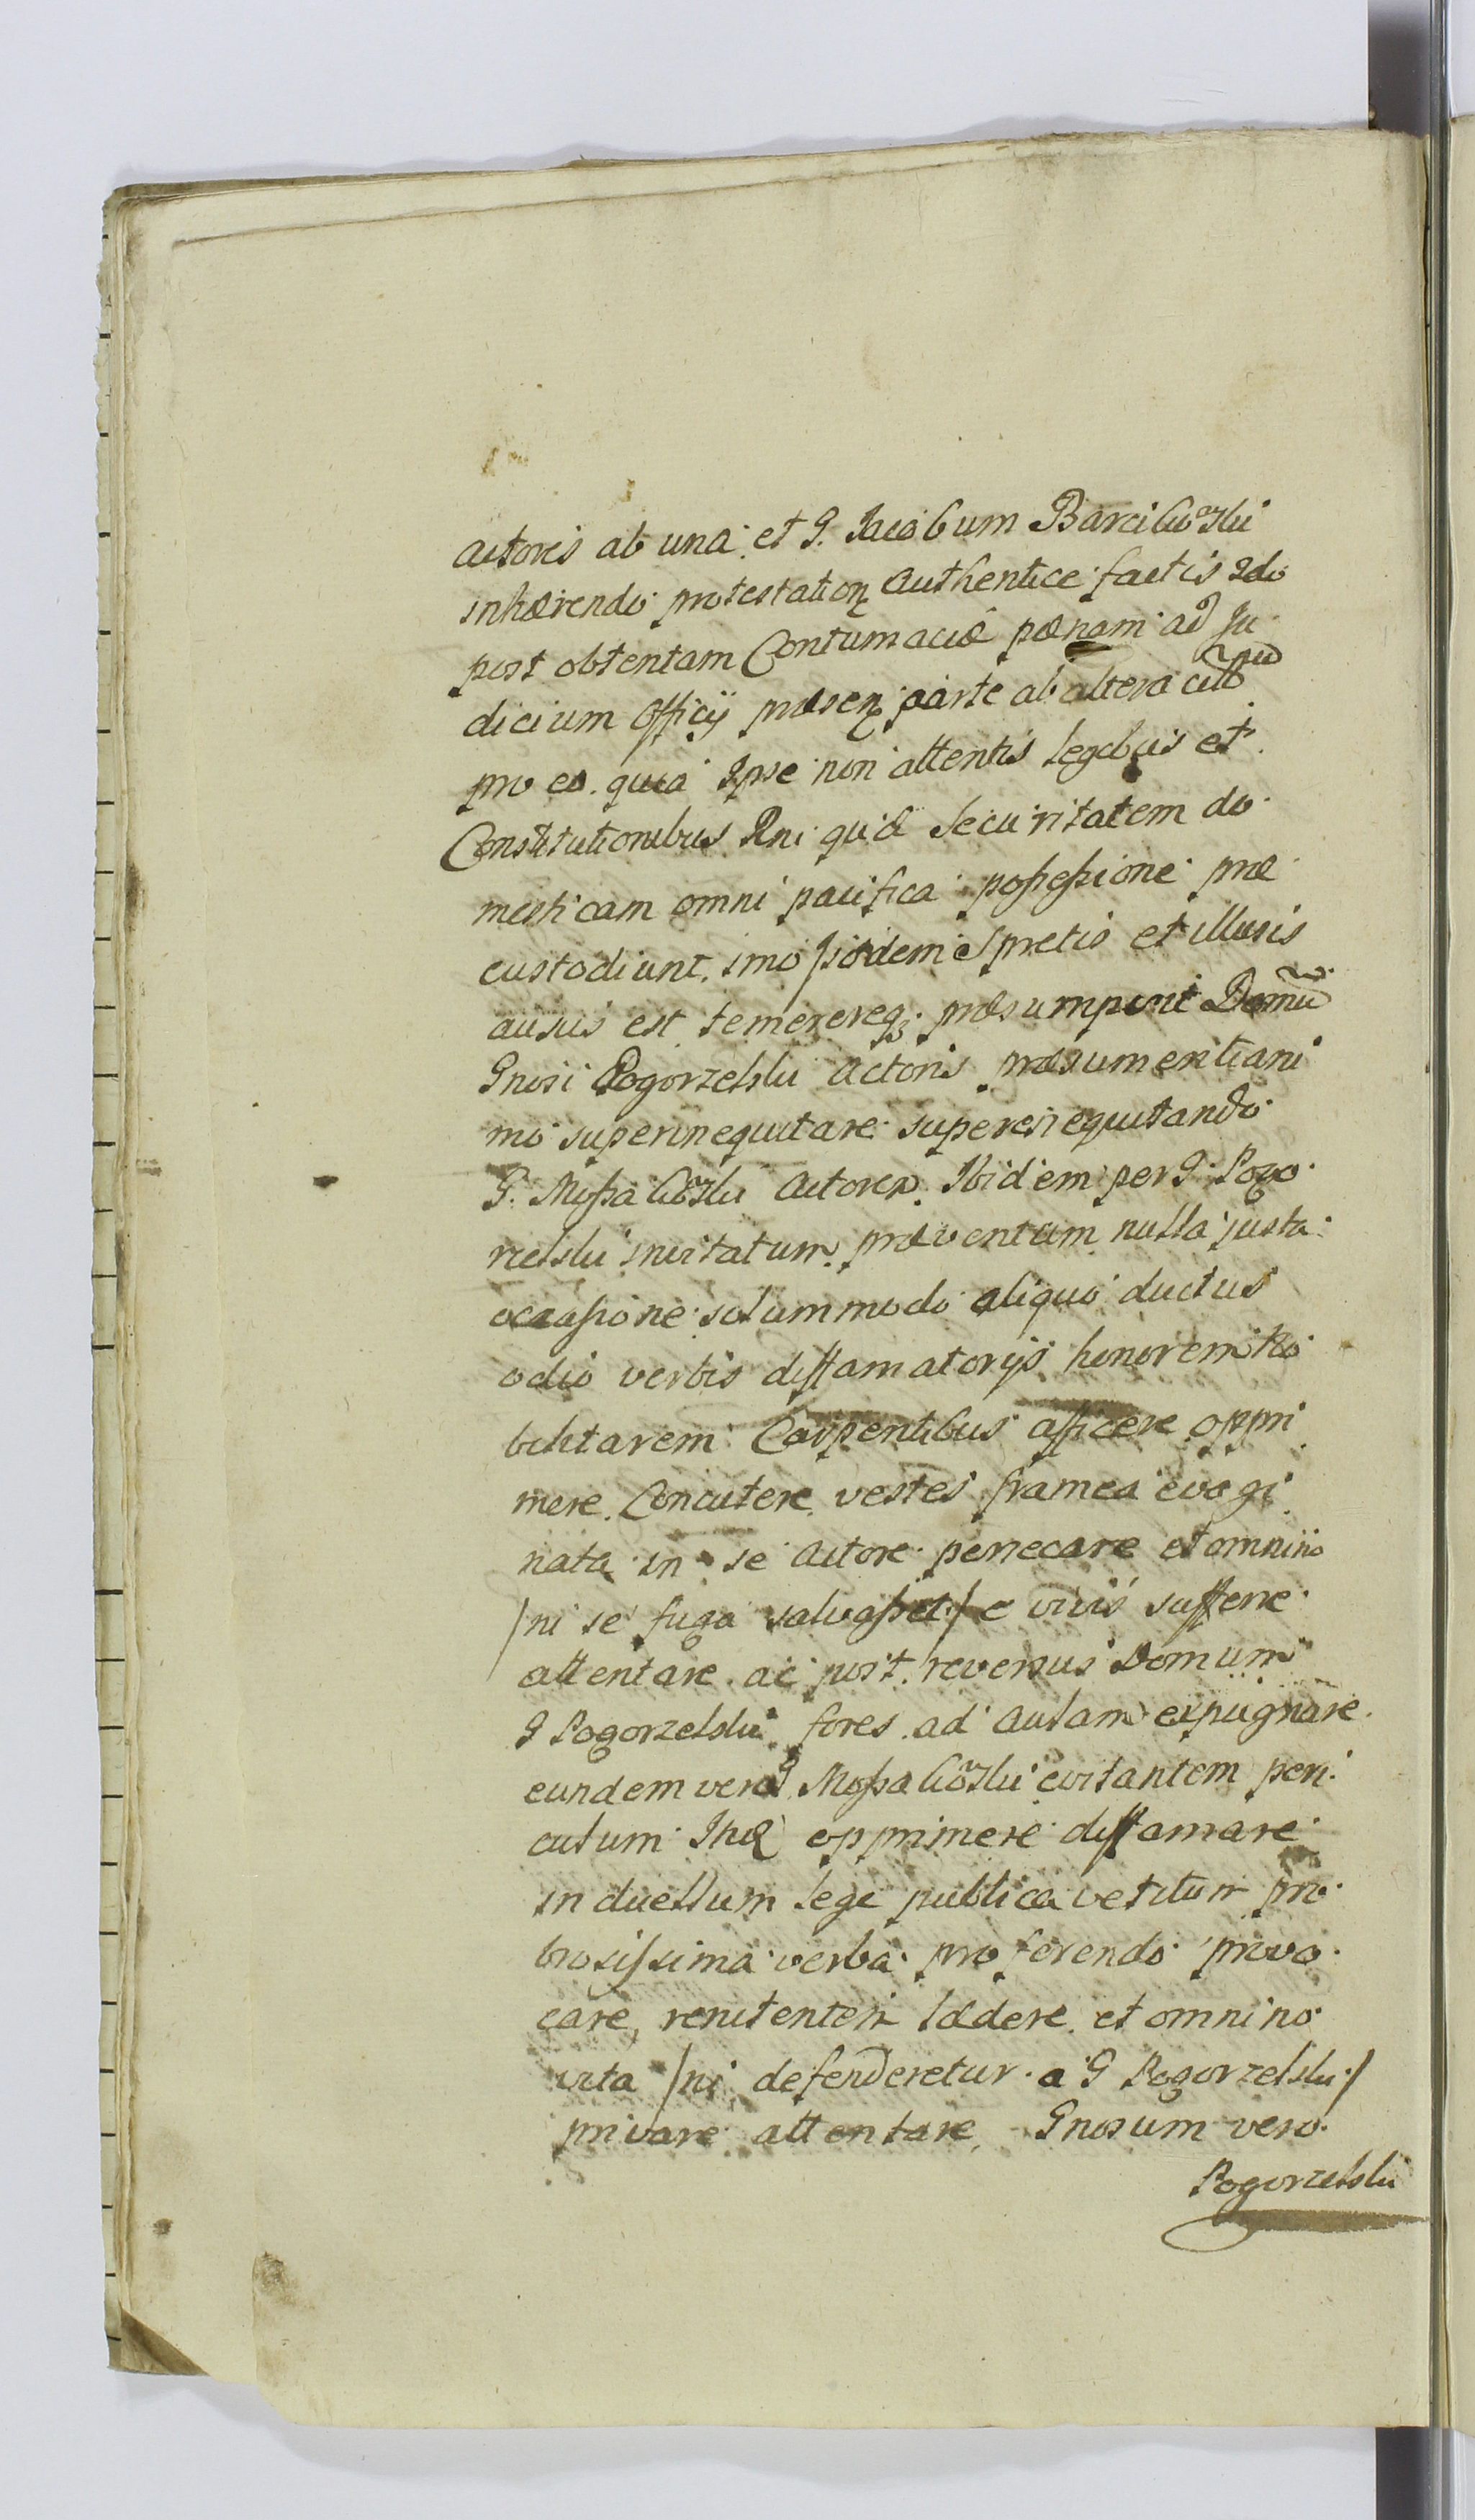 Actores ab una. et G. Jacobum Barcikowski
inhærendo protestation Authentice factis 2do
post obtentam Contumaciæ pænam ad Ju
dicium Officij præsen parte ab altera
pro eo. quia Ipse non attentis legibus et
Constitutionibus Rni quæ Securitatem do
mesticam omni pacifica possessione præ
custodiunt. imo iisdem spretis et illusis
ausus est temereveq; præsumpsit Domũ
Gnosi Pogorzelski Actoris præsumenti ani
mo superinequitare superinequitando
G. Mossakowski Actorem Ibidem per G. Pogo
rzelski invitatum præventum nulla justa
occasione solummodo aliquo ductus
odio verbis diffamatorijs honorem No
bilitarem Carpentibus afficere oppri
mere. Concutere vestes framea evagi
nata in se Actore pernecare et omnino
/ni se fuga salvasset/ e vivis sufferre
attentare. ac post reversus Domum
G Pogorzelski fores ad Aulam expugnare.
eundem vero G Mossakowski evitantem peri
culum Ibid opprimere diffamare
in duellum lege publica vetitum pro
brosissima verba proferendo provo
care, renitentem lædere et omnino
vita /ni defenderetur a G Pogorzelski/
privare attentare, Gnosum vero
Pogorzelski